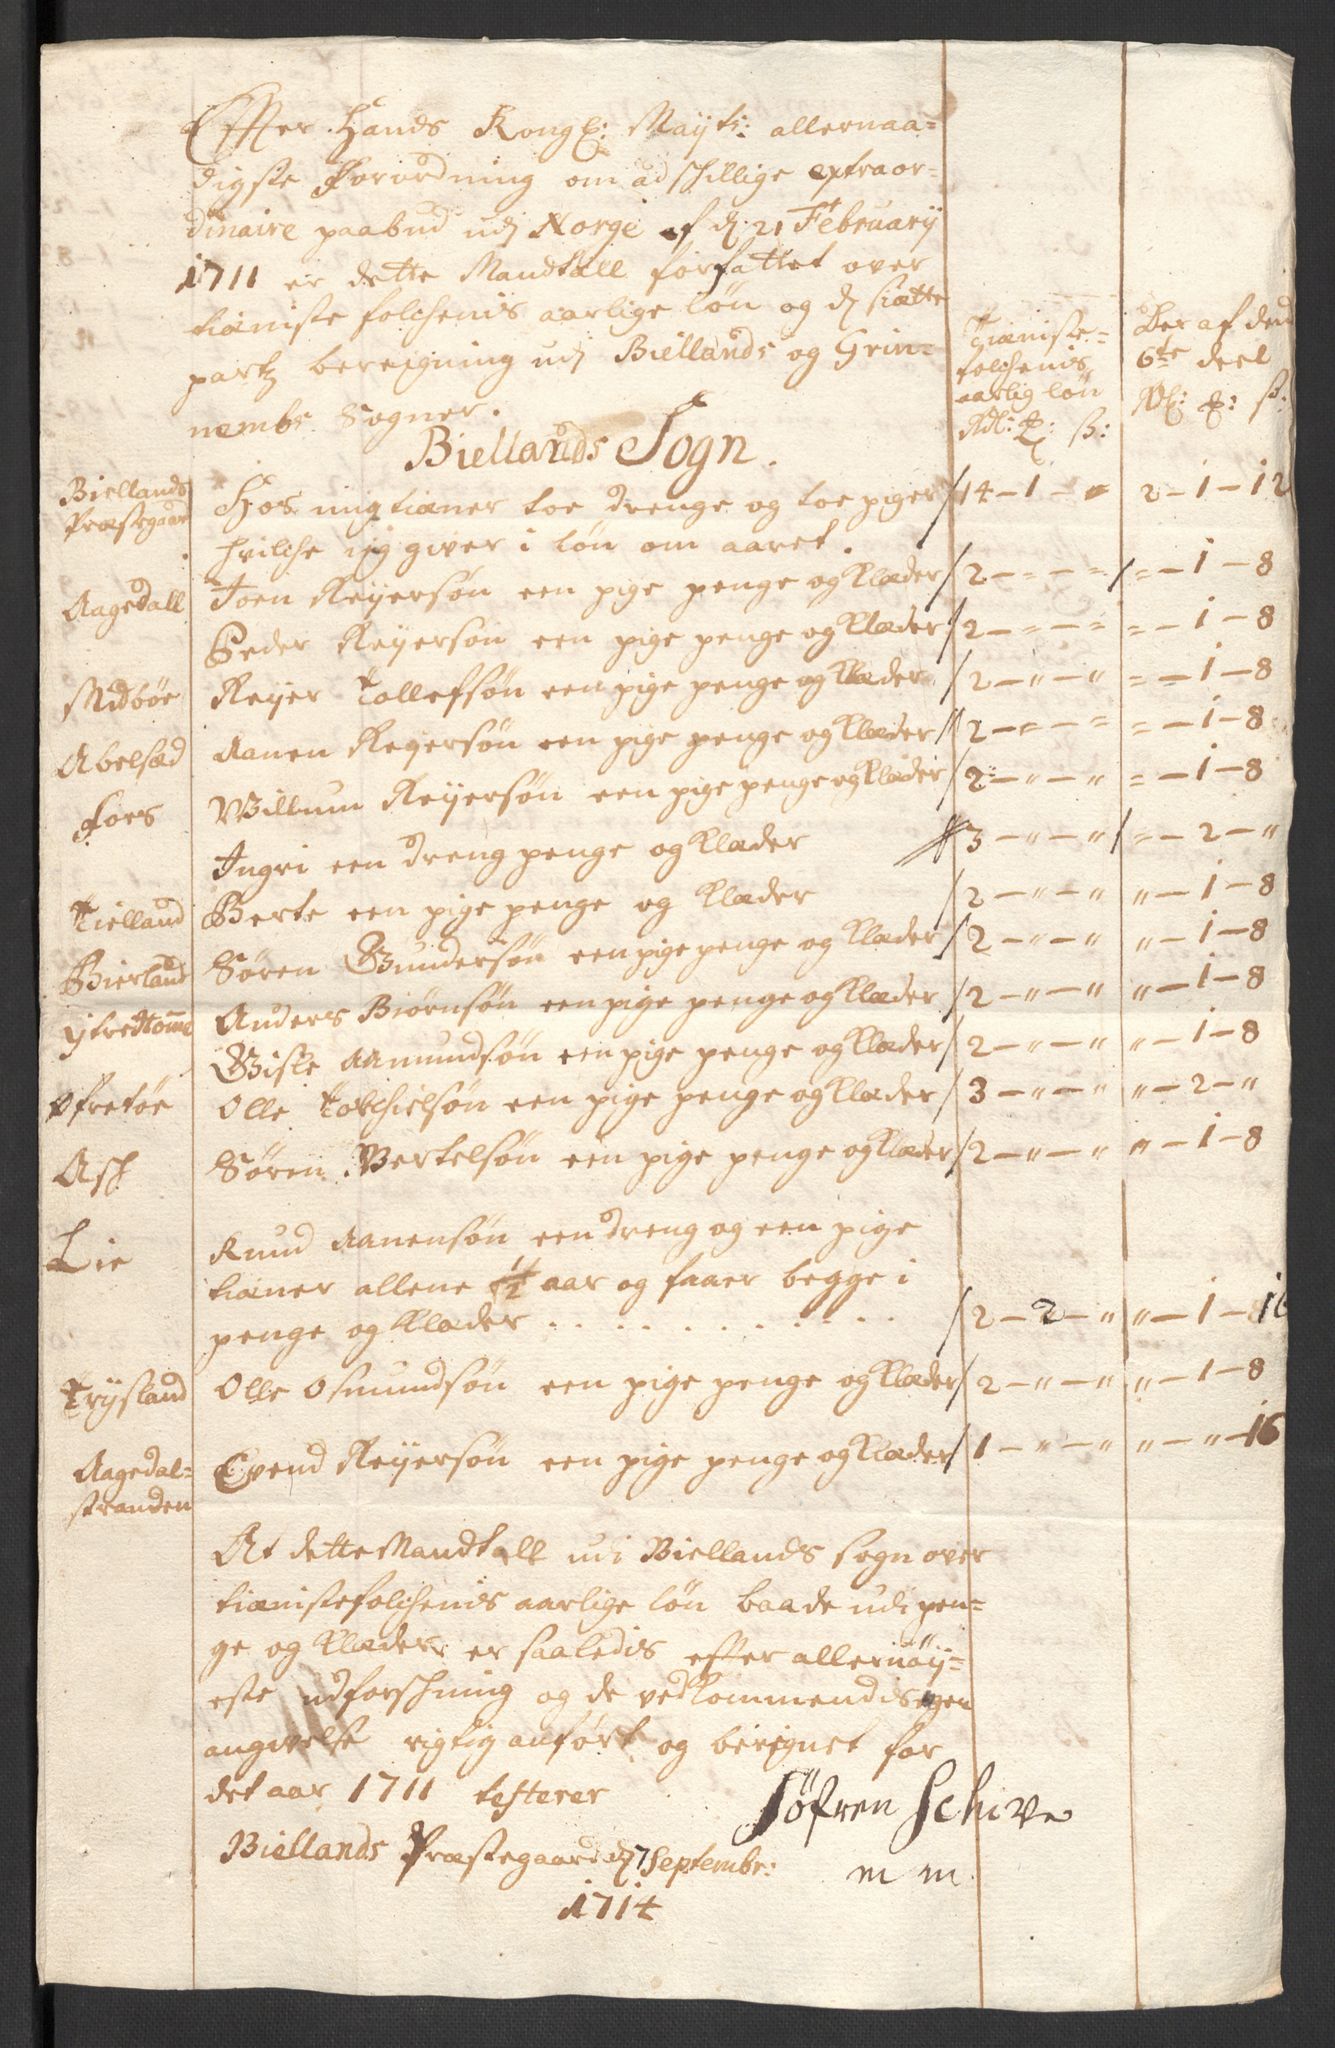 Effter Hands Kongl: Mayts: allernaa=
digste Forordning om adschillige extraor=
dinaire paabud udj Norge af d: 21 February
1711 er dette Mandtall forfattet over
tieniste folchenis aarlige løn og d siette
partz beregning udj Biellands og Grin=
nembs Sogner.
Tieniste=
folchenis
aarlig løn
Rdl: ß:
Her af dend
6te deel
Rdl: ß:
Biellands Sogn.
Biellands
Præstegaard
Hos mig tiener toe drenge og toe piger / 14 – 1 – " 2 – 1 – 12
hvilche ieg giver i løn om aaret.
Aagedall Joen Reijersøn een pige penge og Klæder / 2 – = – = / = – 1 – 8
Peder Reijersøn een pige penge og Klæder / 2 – = – = = – 1 – 8
Midbøe Reijer Tollefsøn een pige penge og Klæder / 2 – " – " = – 1 – 8
Abelsæd Aanen Reijersøn een pige penge og Klæder // 2 – = – = = – 1 – 8
Foss Willum Reijersøn een pige penge og Klæder / 2 – " – " = – 1 – 8
Ingri een dreng penge og Klæder 3 – " – " / = – 2 – "
Tielland Berte een pige penge og Klæder / 2 – " – " " – 1 – 8
Bierland Søren Gundersøn een pige penge og Klæder / 2 – " – " " – 1 – 8
Anders Biørnsøn een pige penge og Klæder / 2 – " – " " – 1 – 8
Gisle Aamundsøn een pige penge og Klæder / 2 – " – " " – 1 – 8
Øfretøe Olle Tolchielsøn een pige penge og Klæder / 3 – " – " " – 2 – "
Ask Søren Bertelsøn een pige penge og Klæder / 2 – " – " " – 1 – 8
Lie Knud Aanensøn een dreng og een pige
tiener allene 1/2 aar og faaer begge i
penge og Klæder . . . . . . . . . . . / 2 – 2 – " " – 1 – 16
Trysland Olle Osmundsøn een pige penge og Klæder / 2 – " – " " – 1 – 8
Aagedal=
stranden
Evend Reijersøn een pige penge og Klæder / 1 – " – " " – " – 16
At dette Mandtall udi Biellands sogn over
tienistefolchenis aarlige løn baade udi pen=
ge og Klæder er saaledis efter allernøij=
este udforschning og de vedkommendis egen
angivelse rigtig anført og beregnet for
det aar 1711 testerer
Søfren Schive
Biellands Præstegaard d 7 Septembr:
m m
1714